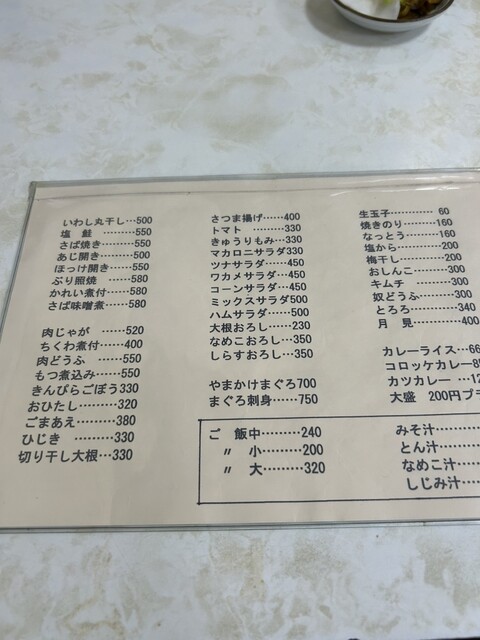 いわし丸干し…500
塩　鮭　………550
さば焼き………550
あじ開き………500
ほっけ開き……550
ぶり照焼　……580
かれい煮付……580
さば味噌煮……580
肉じゃが　……520
ちくわ煮付……400
肉どうふ　……550
もつ煮込み……550
きんぴらごぼう330
おひたし………320
ごまあえ………380
ひじき　………330
切り干し大根…330
さつま揚げ……400
トマト　………330
きゅうりもみ…330
マカロニサラダ330
ツナサラダ……450
ワカメサラダ…450
コーンサラダ…450
ミックスサラダ500
ハムサラダ……500
大根おろし……230
なめこおろし…350
しらすおろし…350
やまかけまぐろ700
まぐろ刺身……750
生玉子………… 60
焼きのり………160
なっとう………160
塩から…………200
梅干し…………200
おしんこ………300
キムチ　………300
奴どうふ………300
とろろ　………340
月　見…………400
カレーライス…
コロッケカレー
カツカレー　…
大盛　200円
ご　飯中………240
〃　小………200
〃　大………320
みそ汁………
とん汁………
なめこ汁……
しじみ汁……